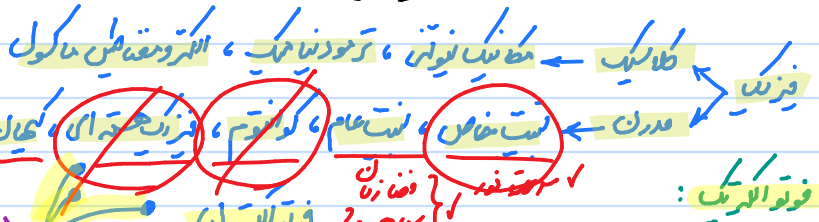 فیزیک
کلاسیک ← مکانیک نیوتنی ، ترمودینامیک ، الکترومغناطیس ماکسول
مدرن ← نسبیت خاص ، نسبیت عام ، کوانتوم ، فیزیک هسته‌ای ،
فضا زمان
فوتوالکتریک :